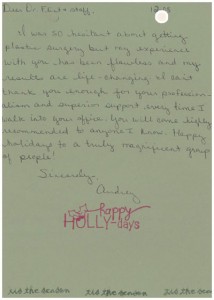 Dear Dr. & staff,
12.08
I was so hesitant about getting
plastic surgery but my experience
with you has been flawless and my
results are life-changing. I can't
thank you enough for your profession-
alism and superior support every time I
walk into your office. You will come highly
recommended to anyone I know. Happy
holidays to a truly magnificent group
of people!
Sincerely,
Audrey
happy
HOLLY-days
tis the season tis the season tis the season